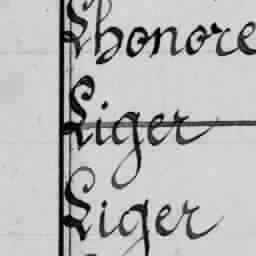 Lhonore
Liger
Liger